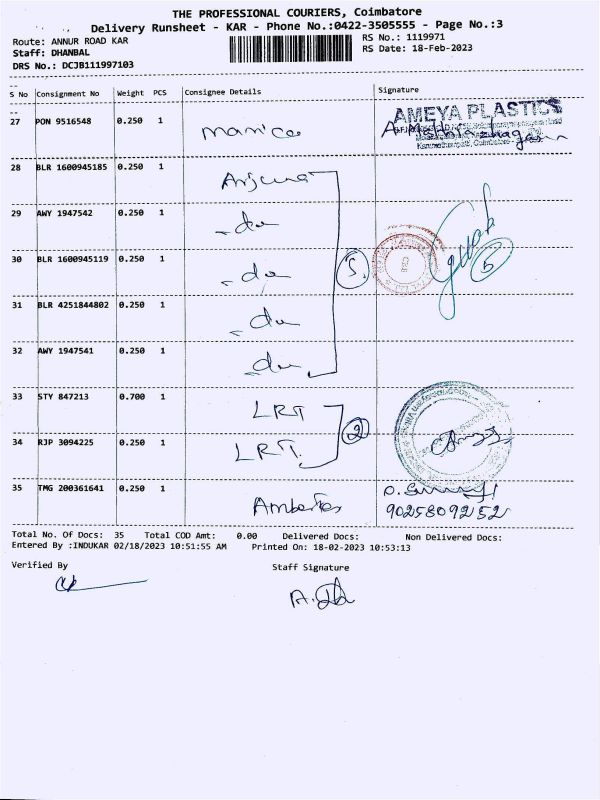 THE PROFESSIONAL COURIERS, Coimbatore
Delivery Runsheet - KAR - Phone No.:0422-3505555 - Page No.:3
Route: ANNUR ROAD KAR
RS No.: 1119971
Staff: DHANBAL
RS Date: 18-Feb-2023
DRS No.: DCJB111997103
S No Consignment No Weight PCS Consignee Details Signature
27 PON 9516548 0.250 1 AMEYA PLASTICS
28 BLR 1600945185 0.250 1
29 AWY 1947542 0.250 1 - do
30 BLR 1600945119 0.250 1 - do 5
31 BLR 4251844802 0.250 1 - do
32 AWY 1947541 0.250 1 - do
33 STY 847213 0.700 1 LRT
34 RJP 3094225 0.250 1 LRT. 2
35 TMG 200361641 0.250 1
9025809252
Total No. Of Docs: 35 Total COD Amt: 0.00 Delivered Docs: Non Delivered Docs:
Entered By :INDUKAR 02/18/2023 10:51:55 AM Printed On: 18-02-2023 10:53:13
Verified By
Staff Signature